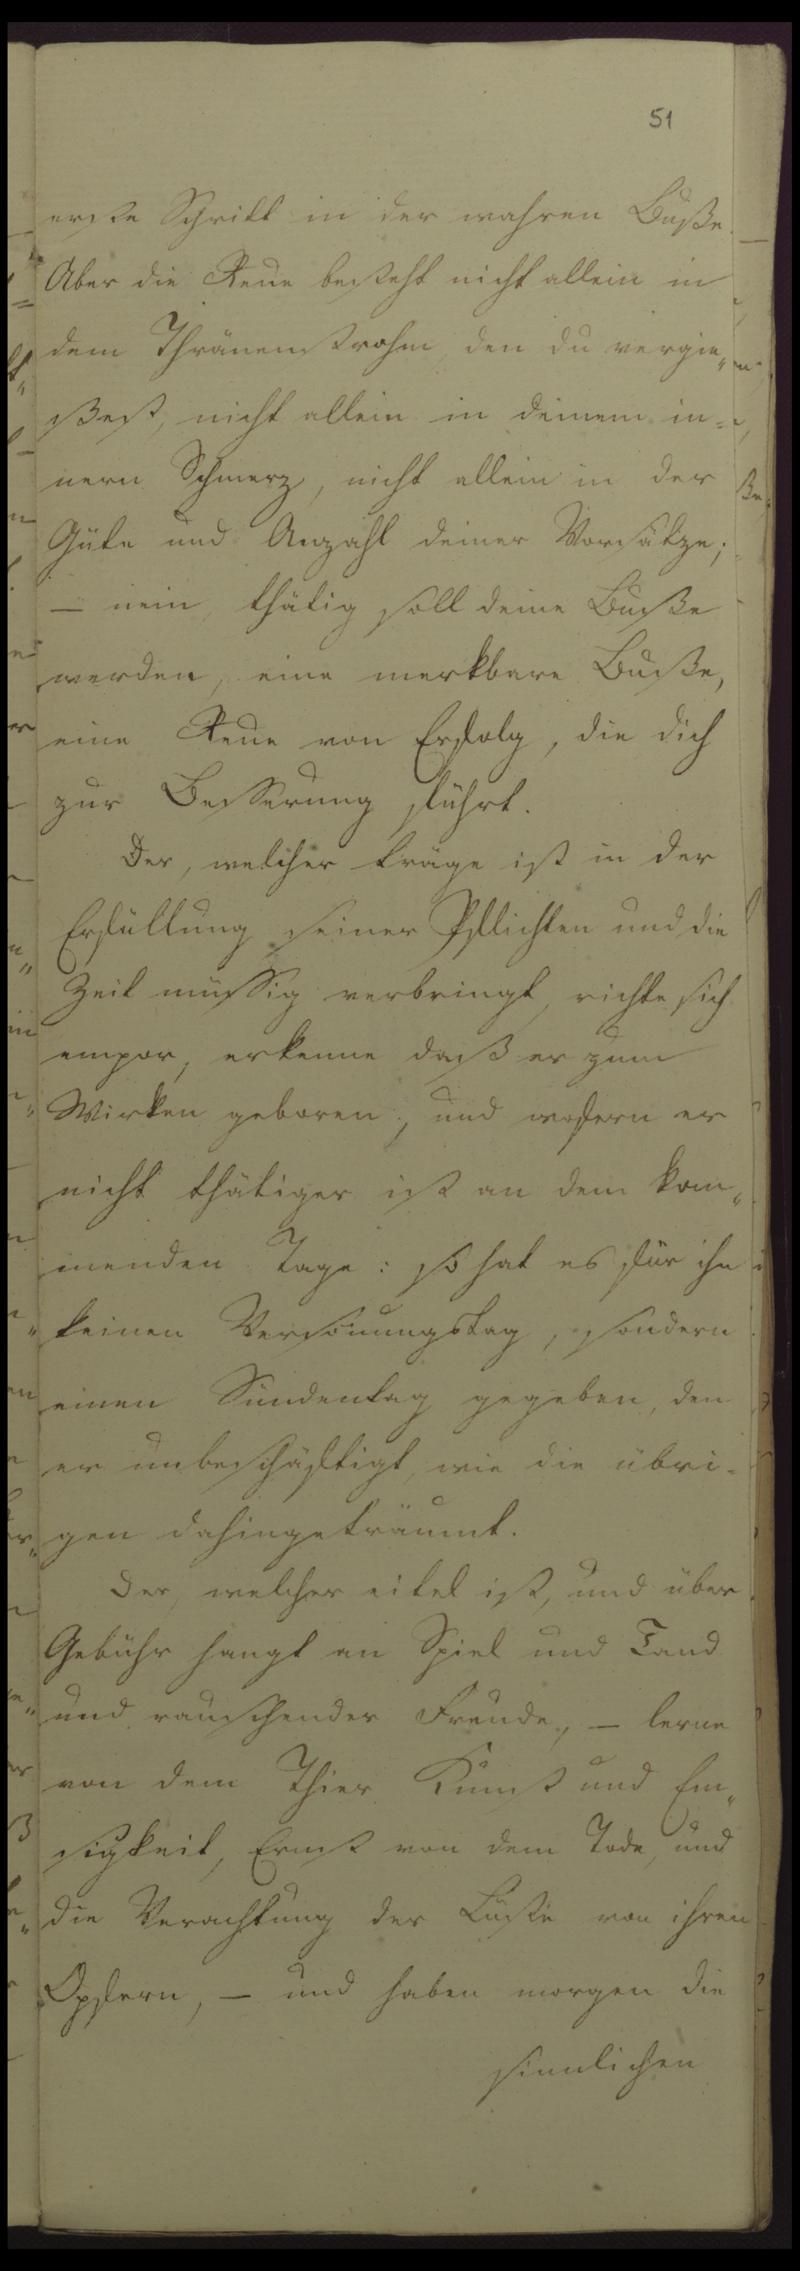 51
erste Schritt in der wahren Buße.
Aber die Reue besteht nicht allein in
dem Thränenstrohm, den du vergie„
ßest, nicht allein in deinem in=
nern Schmerz, nicht allein in der
Güte und Anzahl deiner Vorsätze;
— nein, thätig soll deine Buße
werden, eine merkbare Buße,
eine Reue von Erfolg, die dich
zur Besserung führt.
Der, welcher träge ist in der
Erfüllung seiner Pflichten und die
Zeit müssig verbringt, richte sich
empor, erkenne daß er zum
Wirken geboren, und wofern er
nicht thätiger ist an dem kom„
menden Tage: so hat es für ihn
keinen Versönungstag, sondern
einen Sündentag gegeben, den
er unbeschäftigt, wie die übri=
gen dahingeträumt.
Der, welcher eitel ist, und über
Gebühr hangt an Spiel und Tand
und rauschender Freude, — lerne
von dem Thier Kunst und Em„
sigkeit, Ernst von dem Tode, und
die Verachtung der Lüste von ihren
Opfern, — und haben morgen die
sinnlichen